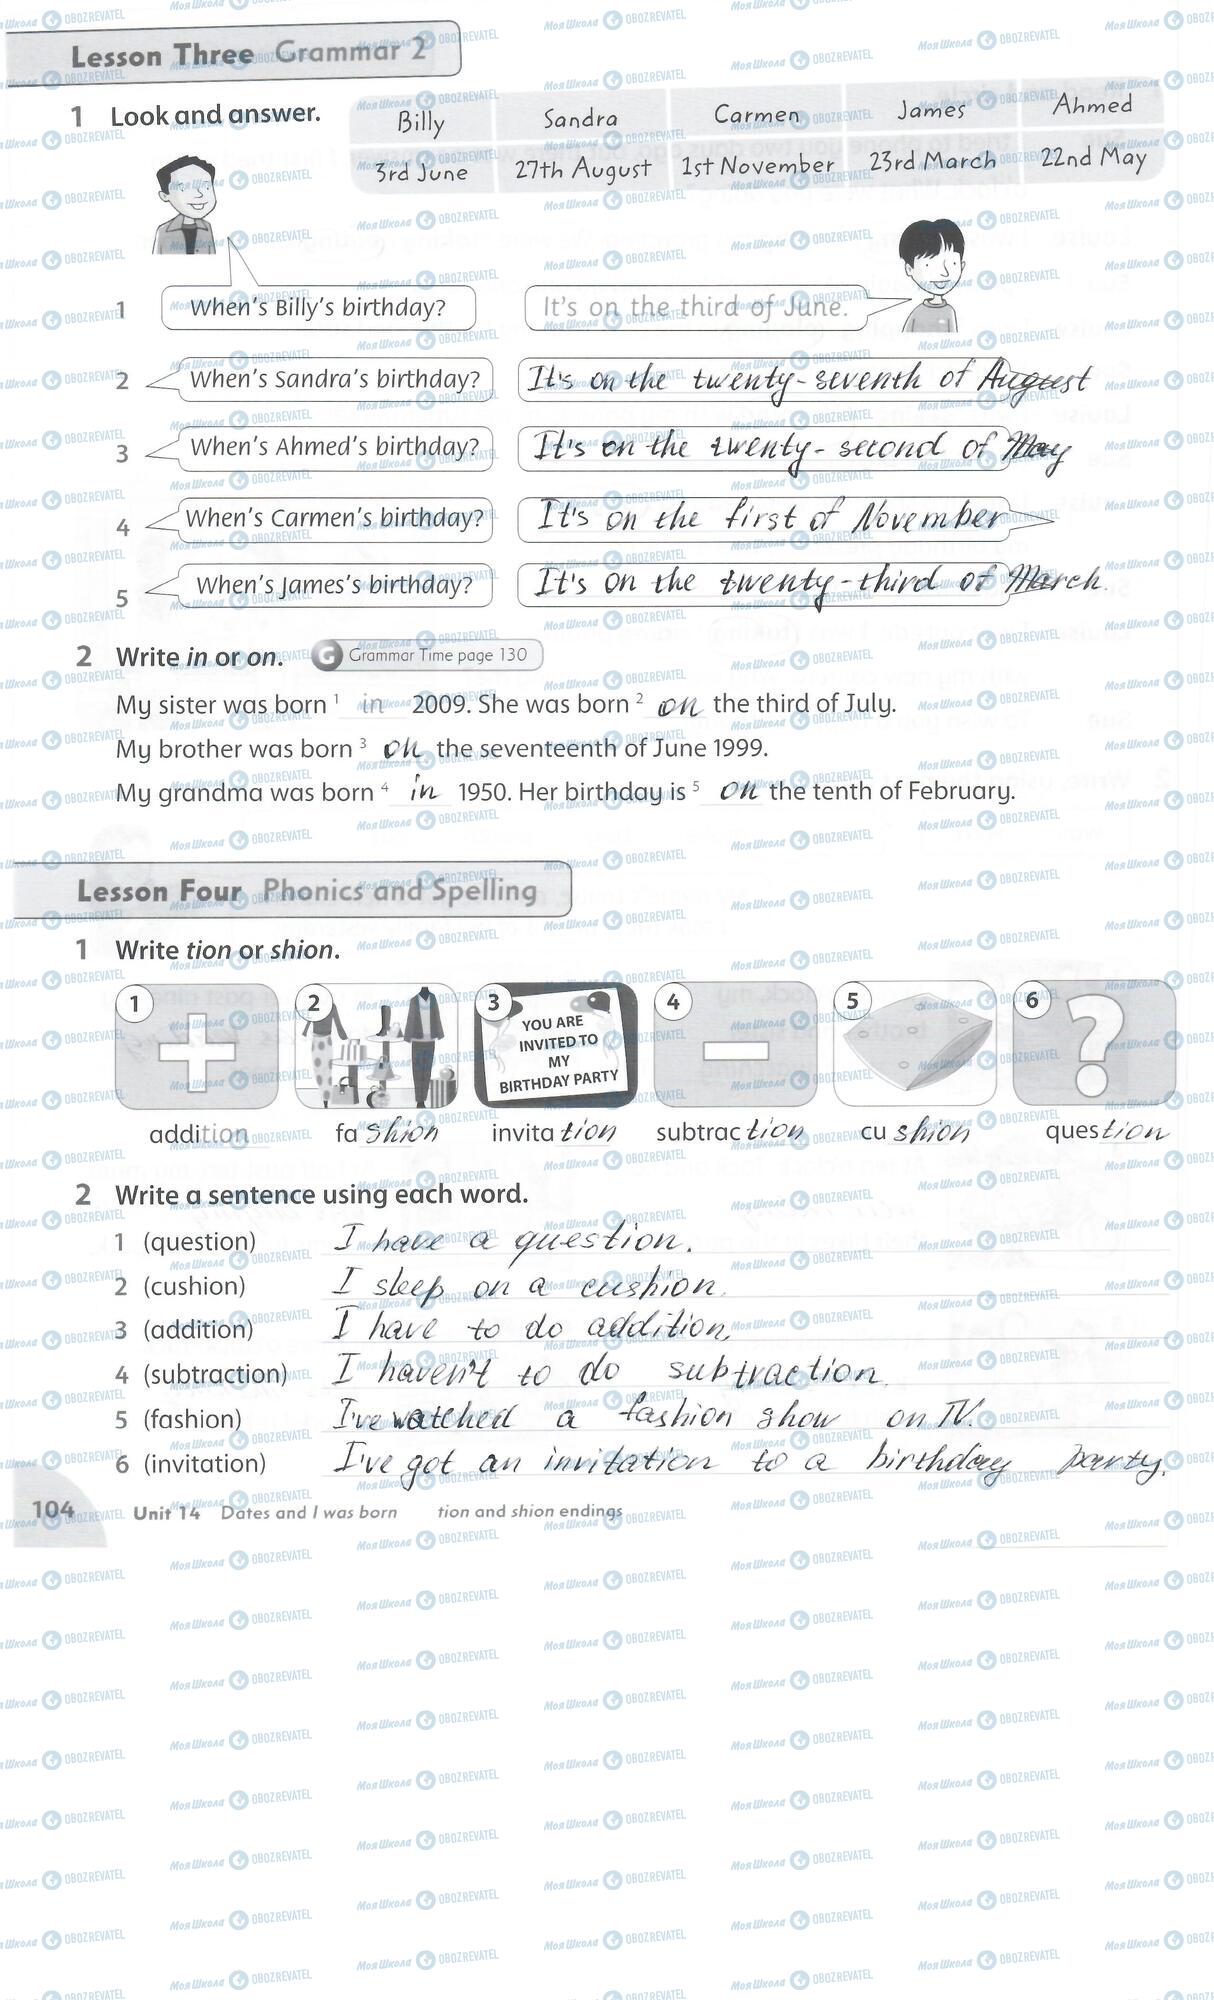 Lesson Three Grammar 2
1 Look and answer.
Billy Sandra Carmen James Ahmed
3rd June 27th August 1st November 23rd March 22nd May
1 When's Billy's birthday? It's on the third of June.
2 When's Sandra's birthday? It's on the twenty-seventh of August
3 When's Ahmed's birthday? It's on the twenty-second of May
4 When's Carmen's birthday? It's on the first of November
5 When's James's birthday? It's on the twenty-third of March.
2 Write in or on. G Grammar Time page 130
My sister was born 1 in 2009. She was born 2 on the third of July.
My brother was born 3 on the seventeenth of June 1999.
My grandma was born 4 in 1950. Her birthday is 5 on the tenth of February.
Lesson Four Phonics and Spelling
1 Write tion or shion.
1 2 3 4 5 6
YOU ARE
INVITED TO
MY
BIRTHDAY PARTY
addition fashion invitation subtraction cushion question
2 Write a sentence using each word.
1 (question) I have a question.
2 (cushion) I sleep on a cushion.
3 (addition) I have to do addition.
4 (subtraction) I haven't to do subtraction.
5 (fashion) I've watched a fashion show on TV.
6 (invitation) I've got an invitation to a birthday party.
104 Unit 14 Dates and I was born tion and shion endings
МояШкола OBOZREVATEL